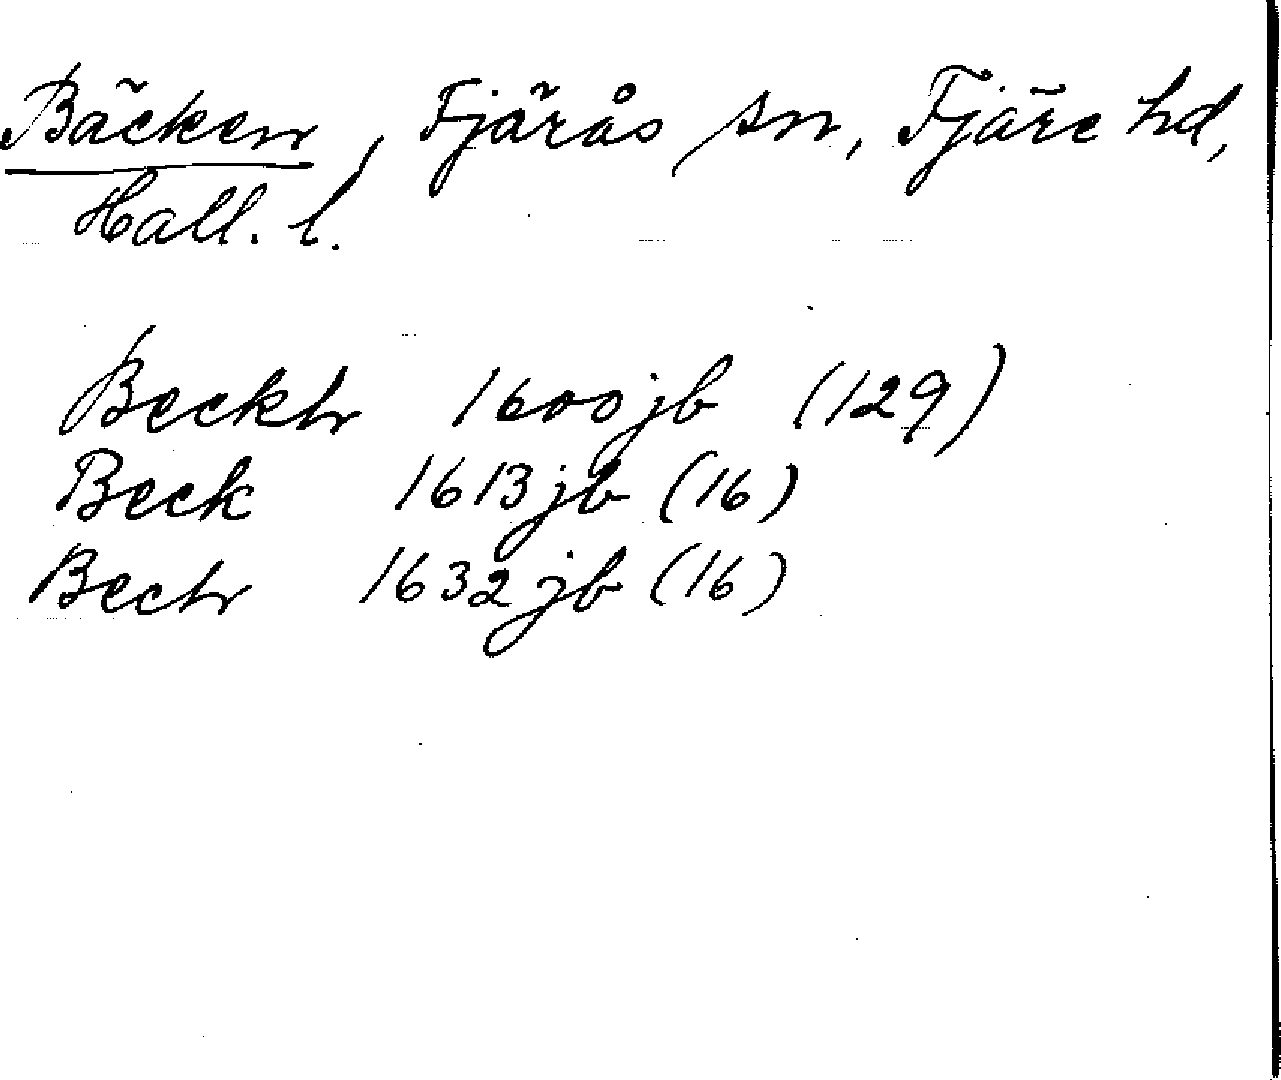 Bäcken, Fjärås sn, Fjäre hd,
Hall. l.
Beckh 1600 jb (129)
Beck 1613 jb (16)
Bech 1632 jb (16)